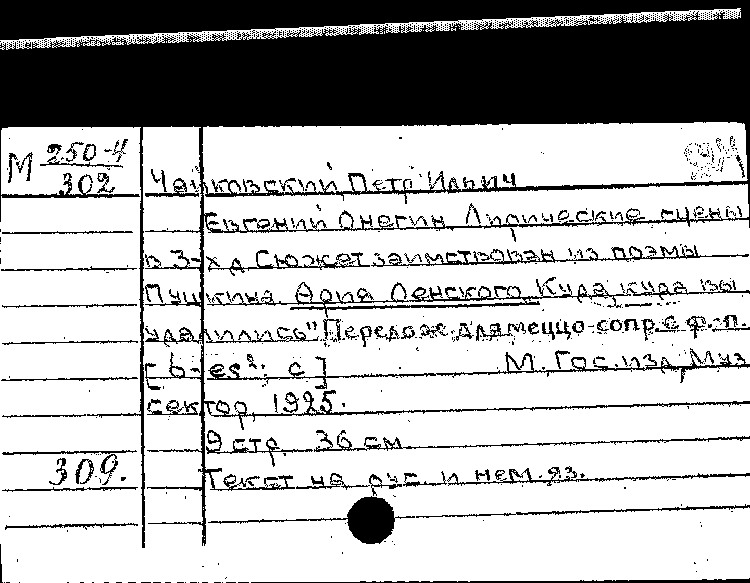 М 250-4
302
Чайковский, Петр Ильич
Евгений Онегин. Лирические сцены
в 3-х д. Сюжет заимствован из поэмы
Пушкина. Ария Ленского „Куда, куда вы
удалились" Перелож. для меццо-сопр. с ф.-п.
[b-es²; c] М. Гос. изд. Муз.
сектор, 1925.
9 стр. 36 см.
309. Текст на рус. и нем. яз.